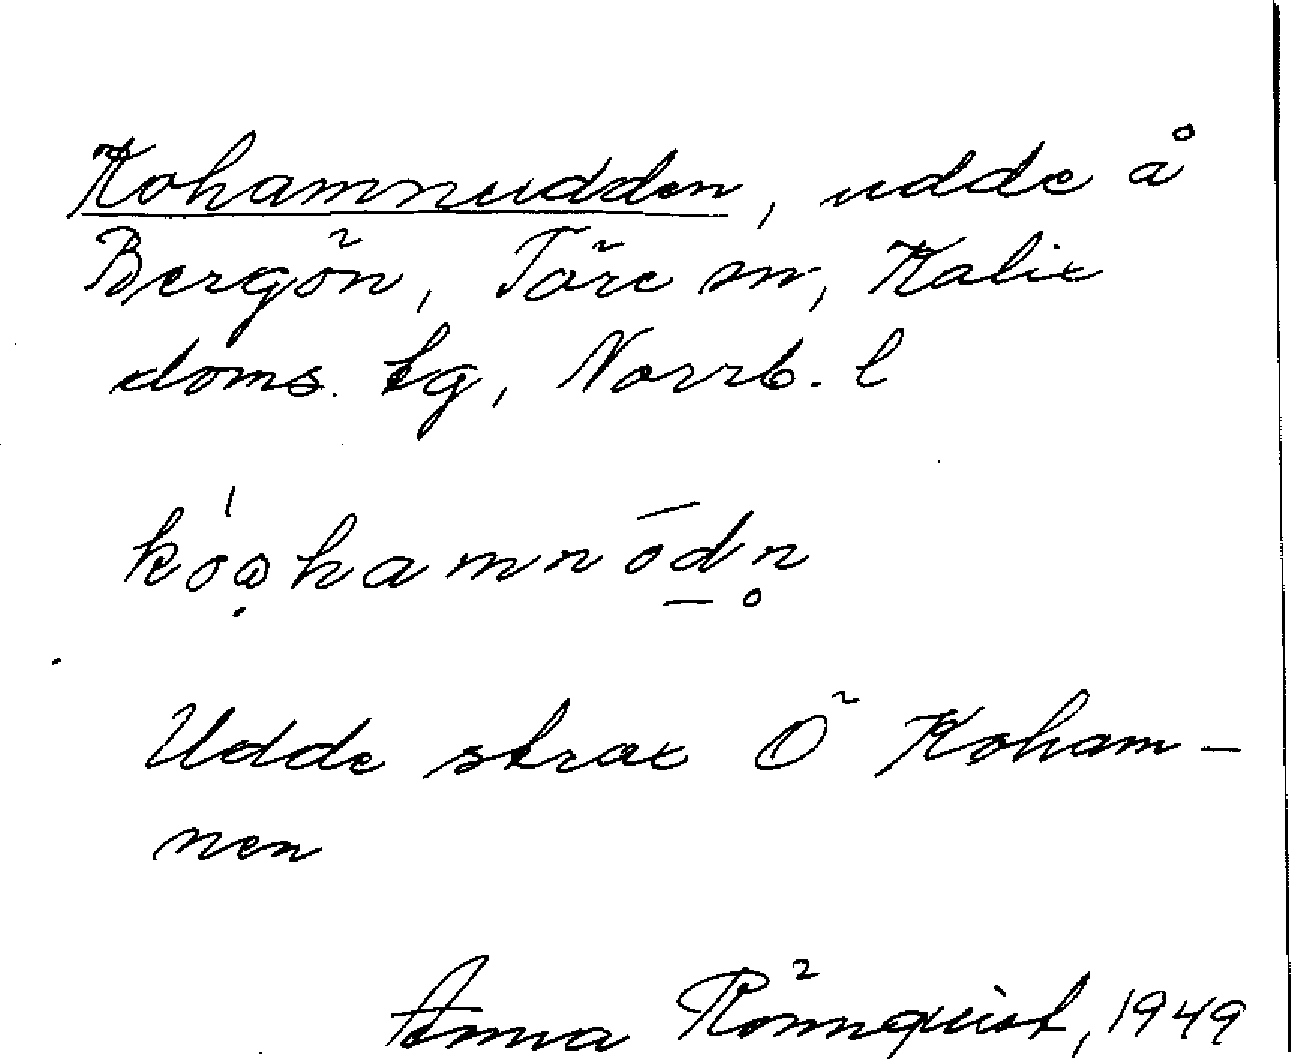 Kohamnudden, udde å
Bergön, Töre sn, Kalix
doms. tg, Norrb. l
Udde strax Ö Koham-
nen
Anna Rönnquist, 1949